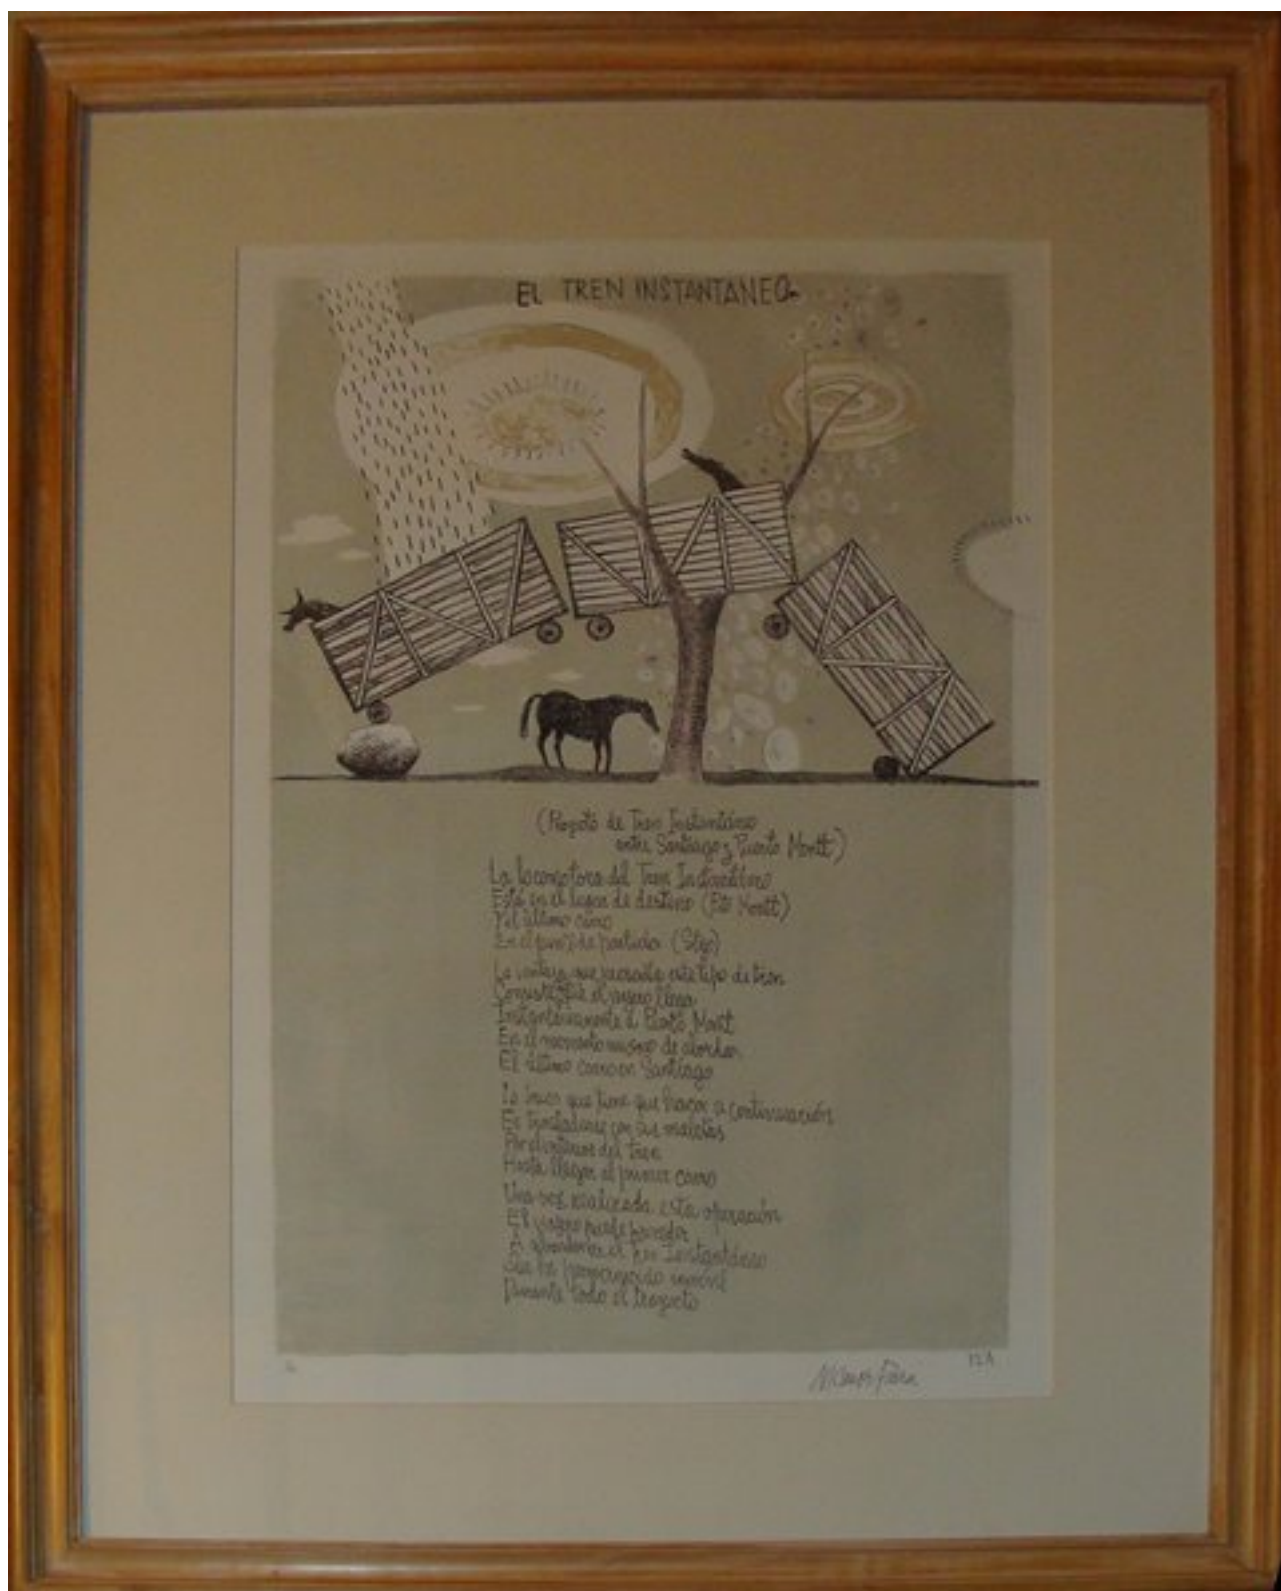 EL TREN INSTANTANEO
(Proyecto de Tren Instantáneo
entre Santiago y Puerto Montt)
La locomotora del Tren Instantáneo
Está en el lugar de destino (Pto Montt)
Y el último carro
En el punto de partida (Stgo)
La ventaja que presenta este tipo de tren
Consiste que el viajero llega
Instantáneamente a Puerto Montt
En el momento mismo de abordar
El último carro en Santiago
Lo único que tiene que hacer a continuación
Es trasladarse con sus maletas
Por el interior del tren
Hasta llegar al primer carro
Una vez realizada esta operación
El viajero puede proceder
A abandonar el tren Instantáneo
Que ha permanecido inmóvil
Durante todo el trayecto
Nicanor Parra